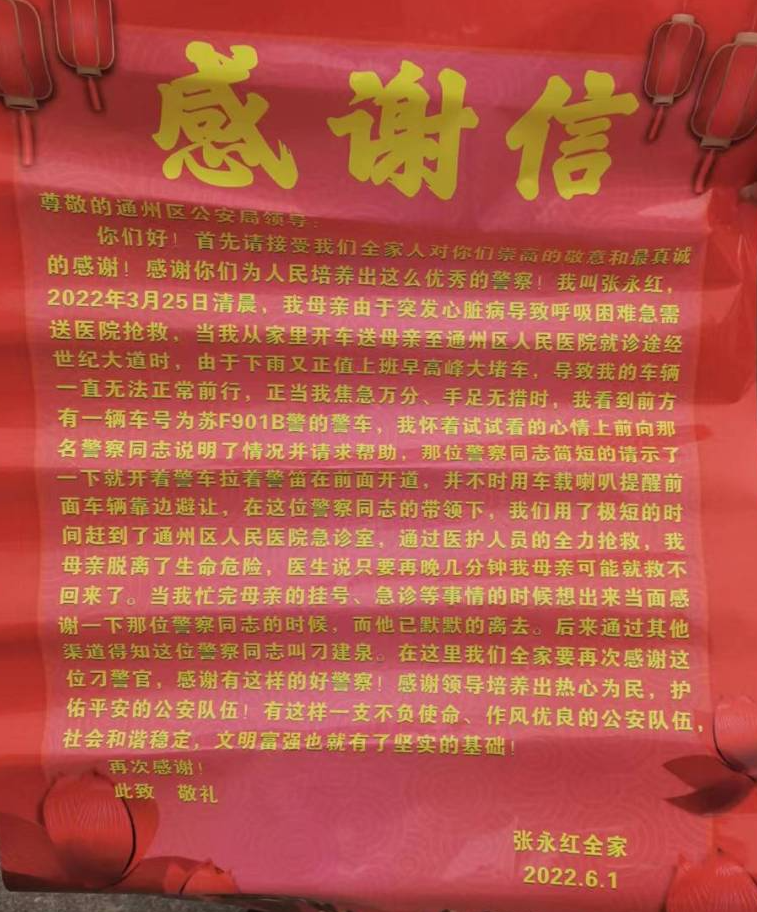 感谢信
尊敬的通州区公安局领导：
你们好！首先请接受我们全家人对你们崇高的敬意和最真诚
的感谢！感谢你们为人民培养出这么优秀的警察！我叫张永红，
2022年3月25日清晨，我母亲由于突发心脏病导致呼吸困难急需
送医院抢救，当我从家里开车送母亲至通州区人民医院就诊途经
世纪大道时，由于下雨又正值上班早高峰大堵车，导致我的车辆
一直无法正常前行，正当我焦急万分、手足无措时，我看到前方
有一辆车号为苏F901B警的警车，我怀着试试看的心情上前向那
名警察同志说明了情况并请求帮助，那位警察同志简短的请示了
一下就开着警车拉着警笛在前面开道，并不时用车载喇叭提醒前
面车辆靠边避让，在这位警察同志的带领下，我们用了极短的时
间赶到了通州区人民医院急诊室，通过医护人员的全力抢救，我
母亲脱离了生命危险，医生说只要再晚几分钟我母亲可能就救不
回来了。当我忙完母亲的挂号、急诊等事情的时候想出来当面感
谢一下那位警察同志的时候，而他已默默的离去。后来通过其他
渠道得知这位警察同志叫刁建泉。在这里我们全家要再次感谢这
位刁警官，感谢有这样的好警察！感谢领导培养出热心为民，护
佑平安的公安队伍！有这样一支不负使命、作风优良的公安队伍，
社会和谐稳定，文明富强也就有了坚实的基础！
再次感谢！
此致 敬礼
张永红全家
2022.6.1